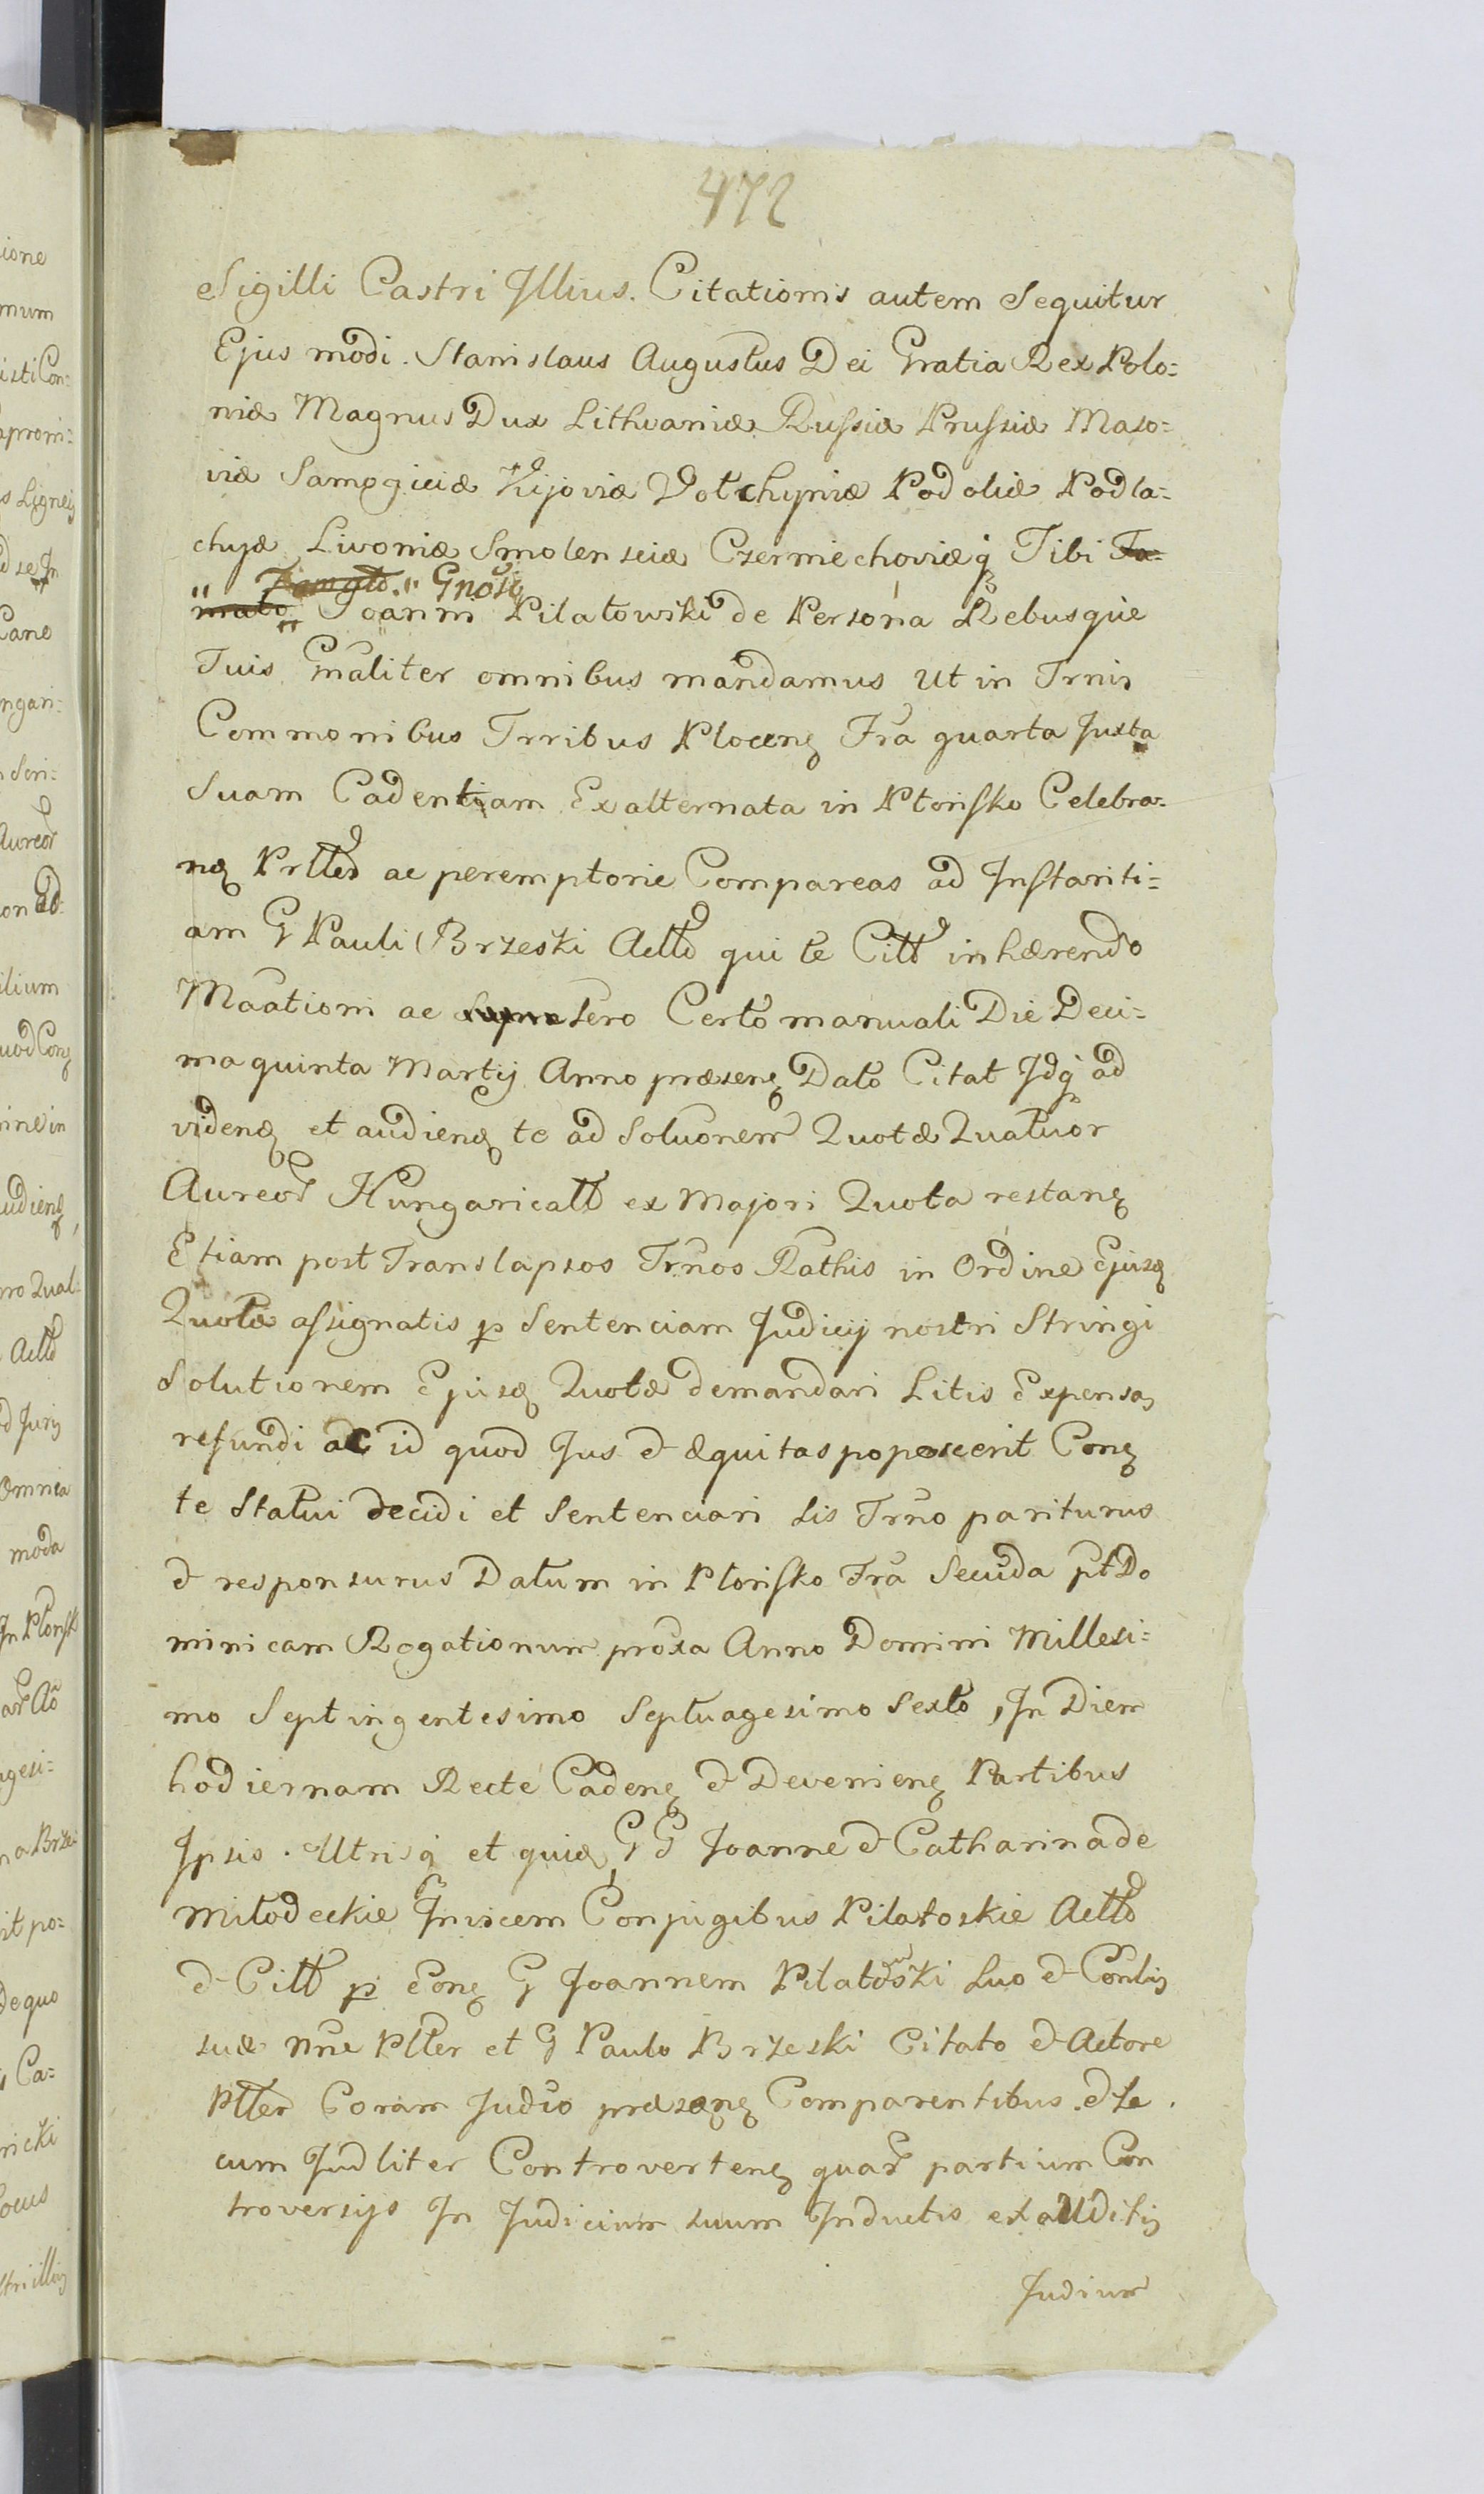 472
Sigilli Castri Jllius. Citationis autem Sequitur
Ejus modi. Stanislaus Augustus Dei Gratia Rex Polo=
niæ Magnus Dux Lithvaniæ Russiæ Prussiæ Maso=
viæ Samogiciæ Kijoviæ Volchyniæ Podoliæ Podla=
chyæ Livoniæ Smolensciæ Czerniechoviæq Tibi Fa=
" Famato." Gnoso
mato Joanni Pilatowski de Persona Rebusque
Tuis Gnaliter omnibus mandamus Ut in Trnis
Commonibus Trribus Plocenę Fra quarta Juxta
Suam Cadentiam Exalternata in Płońsko Celebra=
nę Prlter ac peremptorie Compareas ad Jnstanti=
am G Pauli Brzeski Actto qui te Citt inhærendo
Maationi ac Sero Certo manuali Die Deci=
ma quinta Martij Anno præsenę Dato Citat Jdq ad
videnę et audienę te ad Soluonem Quotæ Quatuor
Aureor Hungaricall ex Majori Quota restanę
Etiam post Translapsos Trnos Rathis in Ordine Ejusę
Quotæ assignatis p Sentenciam Judicij nostri Stringi
Solutionem Ejusę Quotæ demandari Litis Expensas
refundi ac id quod Jus & æquitas poposcerit Conę
te Statui decidi et Sentenciari sis Trno pariturus
& responsurus Datum in Płońsko Fra Secuda pt Do
minicam Rogationum proxa Anno Domini Millesi=
mo Septingentesimo Septuagesimo Sexto, Jn Diem
hodiernam Recte Cadenę & Devenienę Partibus
Jpsis. Utrisq et quidę GG Joanne & Catharina de
Miłodeckie Jnvicem Conjugibus Pilatoskie Actto
& Citt p Eonę G Joannem Pilatowski suo & Contis
suæ nne Plter et G Paulo Brzeski Citato & Actore
Plter Coram Judio præsenę Comparentibus & se
cum Judliter Controvertenę quar partium Con
troversijs Jn Judicium suum Jnductis et auditis
Judium